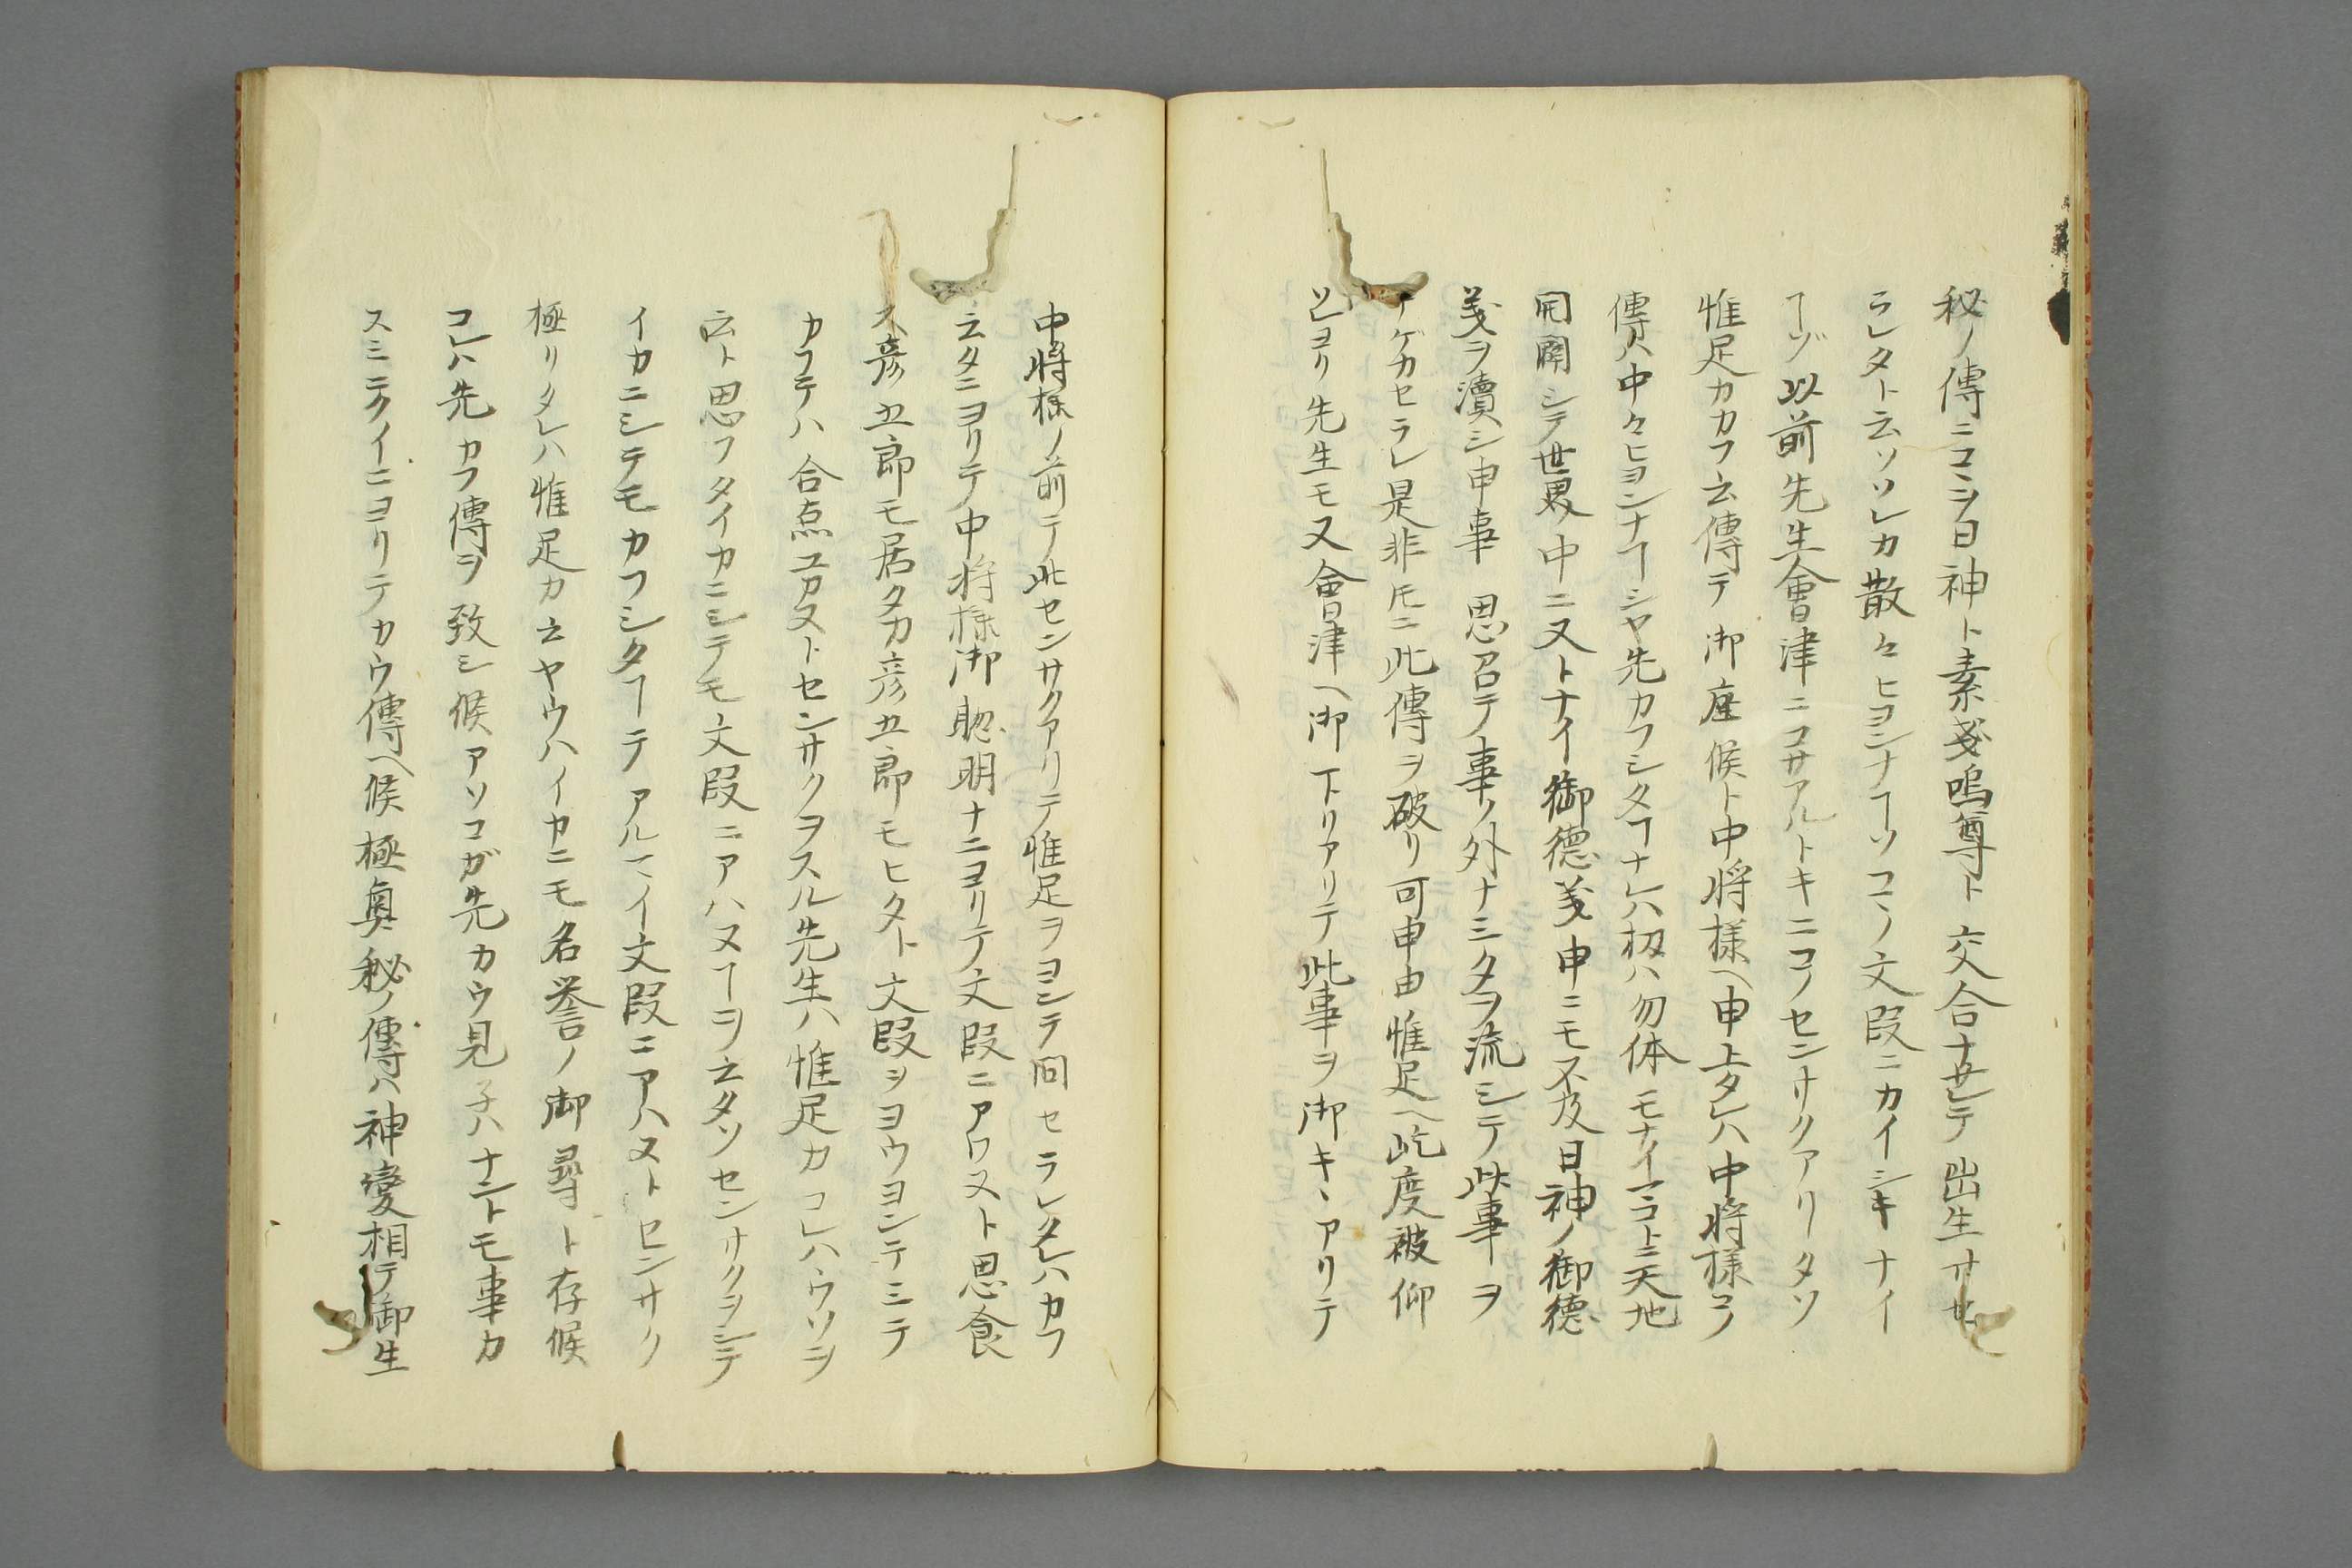 秘ノ傳ニコヽヲ日神ト素戔嗚尊ト交合ナサレテ出生サセ
ラレタト云ソソレカ散々ヒヨンナヿソコノ文段ニカイシキナイ
ヿゾ以前先生會津ニコサアルトキニコノセンサクアリタソ
惟足カカフ云傳テ御座候ト中将様ヘ申上タレハ中将様コノ
傳ハ中々ヒヨンナヿシヤ先カフシタヿナレハ扨ハ勿体モナイマコトニ天地
開闢シテ世界ノ中ニ又トナイ御德義申ニモ不及日神ノ御德
義ヲ瀆シ申事思召テ事ノ外ナミタヲ流シテ此事ヲ
ナゲカセラレ是非𪜈ニ此傳ヲ破リ可申由惟足ヘ屹度被仰
ソレヨリ先生モ又會津ヘ御下リアリテ此事ヲ御キヽアリテ
中将様ノ前テ此センサクアリテ惟足ヲヨンテ問セラレタレハカフ
云タニヨリテ中将様御聡明ナニヨリテ文段ニアワヌト思食
ス彦五郎モ居タカ彦五郎モヒタト文段ヲヨウヨンテミテ
カフテハ合点ユカヌトセンサクヲスル先生ハ惟足カコレハウソヲ
云ト思フタイカニシテモ文段ニアハヌヿヲ云タソセンサクヲシテ
イカニシテモカフシタヿテアルマイ文段ニアハヌトセンサク
極リタレハ惟足カ云ヤウハイカニモ名誉ノ御尋ト存候
コレハ先カフ傳ヲ致シ候アソコガ先カウ見子ハナントモ事カ
スミニクイニヨリテカウ傳ヘ候極奥秘ノ傳ハ神變相テ御生